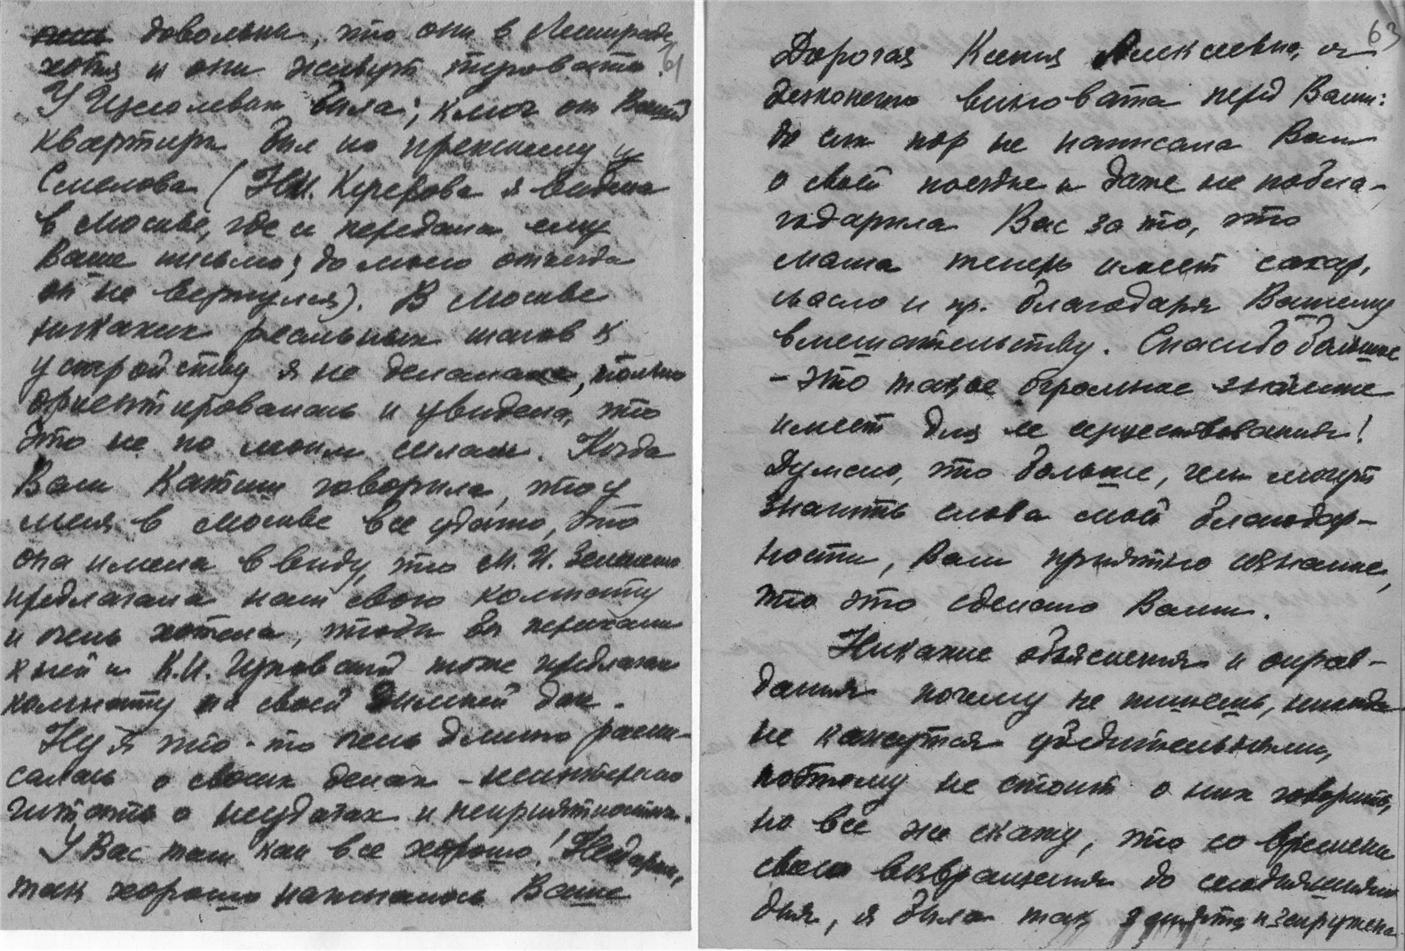 довольны, что они в Ленинграде,
хотя и они живут
61
У Щеголевых была; ключ от Вашей
квартиры был по прежнему у
Смелова (Н.И. я видела
в Москве, где и передала ему
Ваше письмо; до моего отъезда
он не вернулся). В Москве
никаких реальных шагов к
устройству я не делала, только
ориентировалась и увидела, что
это не по моим силам. Когда
Вам говорила, что у
меня в Москве все удачно, это
она имела в виду, что М.И.
предлагала нам свою комнату
и очень хотела, чтобы вы переехали
к ней и К.И. тоже предлагал
комнату на своей зимней даче.
Ну я что-то очень длинно распи-
салась о своих делах – неинтересно
читать о неудачах и неприятностях.
У Вас там как все хорошо! Недаром,
так хорошо написалось Ваше
63
Дорогая Ксения Алексеевна, я
бесконечно виновата перед Вами:
до сих пор не написала Вам
о своей поездке и даже не побла-
годарила Вас за то, что
мама теперь имеет сахар,
масло и пр. благодаря Вашему
вмешательству. Спасибо большое
– это такое огромное значение
имеет для ее существования!
Думаю, что больше, чем могут
значить слова моей благодар-
ности, Вам приятно сознание,
что это сделано Вами.
Никакие объяснения и оправ-
дания почему не пишешь, никогда
не кажутся убедительными,
поэтому не стоит о них говорить,
но все же скажу, что со времени
своего возвращения до сегодняшнего
дня, я была так занята и загружена